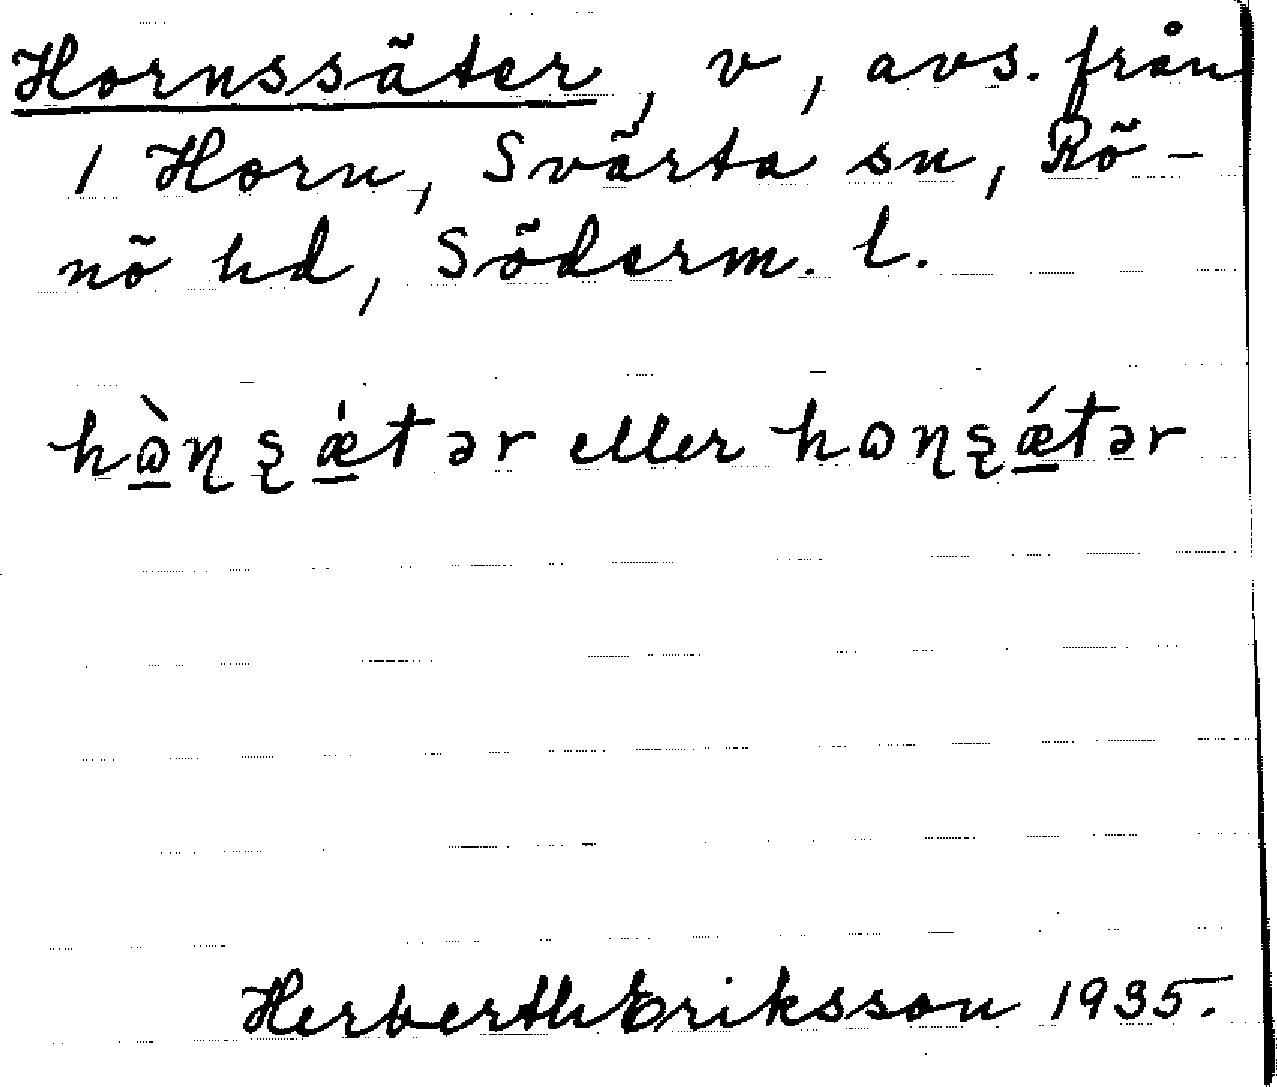 Hornssäter, v, avs. från
1 Horn, Svärta sn, Rö-
nö hd, Söderm. l.
hɷ̠̀ɳʂæ̠̍tər eller hɷɳʂǽ̠tər
Herberth Eriksson 1935.